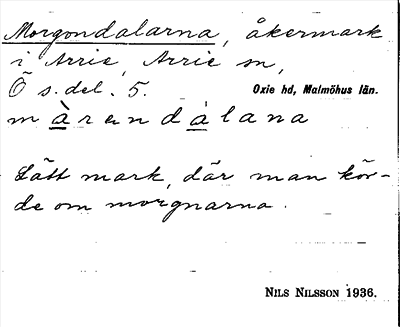 Morgondalarna, åkermark
i Arrie, Arrie sn,
Ö s. del. 5. Oxie hd, Malmöhus län.
màrandàlana
Lätt mark, där man kör-
de om morgnarna.
NILS NILSSON 1936.